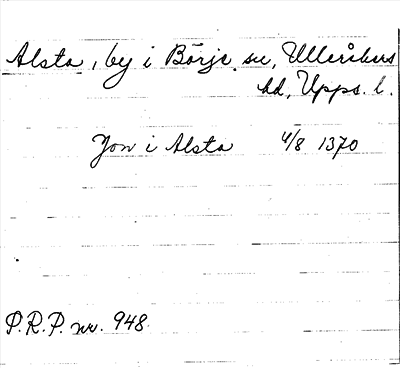 Alsta, by i Börje sn, Ulleråkers
hd, Upps. l.
Jon i Alsta 4/8 1370
P.R.P. nr. 948.